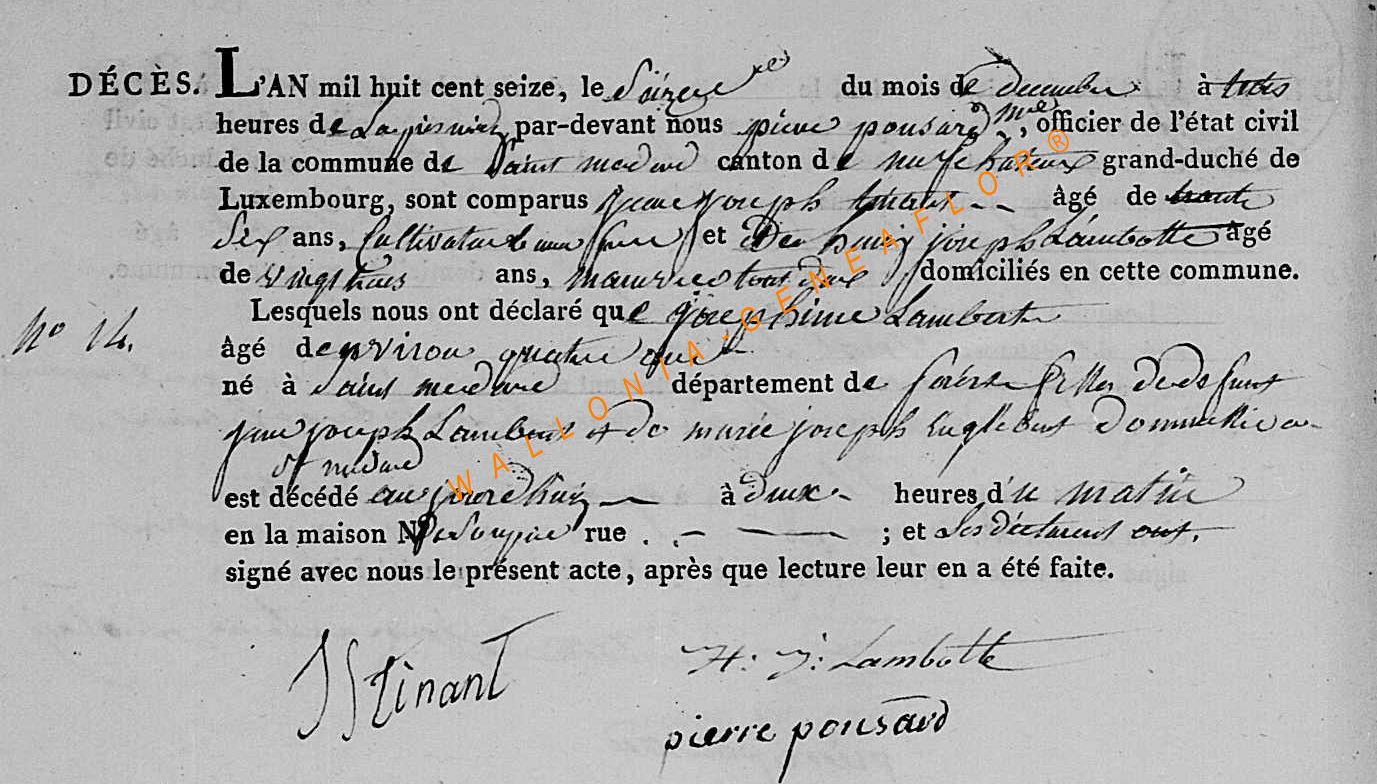 DÉCÈS. L'AN mil huit cent seize, le Seize du mois de decembre à trois
heures de par-devant nous pierre pousard mre, officier de l'état civil
de la commune de Saint medard canton de neufchateaux grand-duché de
Luxembourg, sont comparus jean joseph tinant âgé de trente
Six ans, Cultivateur et De henry joseph Lambotte âgé
de vingt trois ans, tous deux domiciliés en cette commune.
Lesquels nous ont déclaré que josephinne Lambert
No 14.
âgé denviron quatre ans
né à Saint medard département de forêts fille de defunt
jean joseph Lambert et de marie joseph Englebert Domicillié a
St medard
est décédé aujourdhuy à deux heures du matin
en la maison No rue ; et Les déclarent ont
signé avec nous le présent acte, après que lecture leur en a été faite.
JJ Tinant
H: J: Lambotte
pierre pousard
WALLONIA.GENEAFLOR®